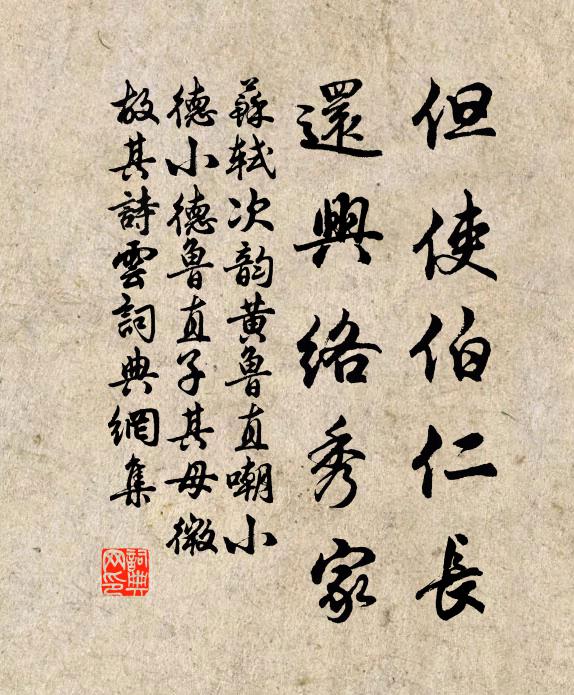 但使伯仁長
還興絡秀家
蘇軾次韵黄魯直嘲小
德小德魯直子其母微
故其詩雲詞典網集
詞典网印